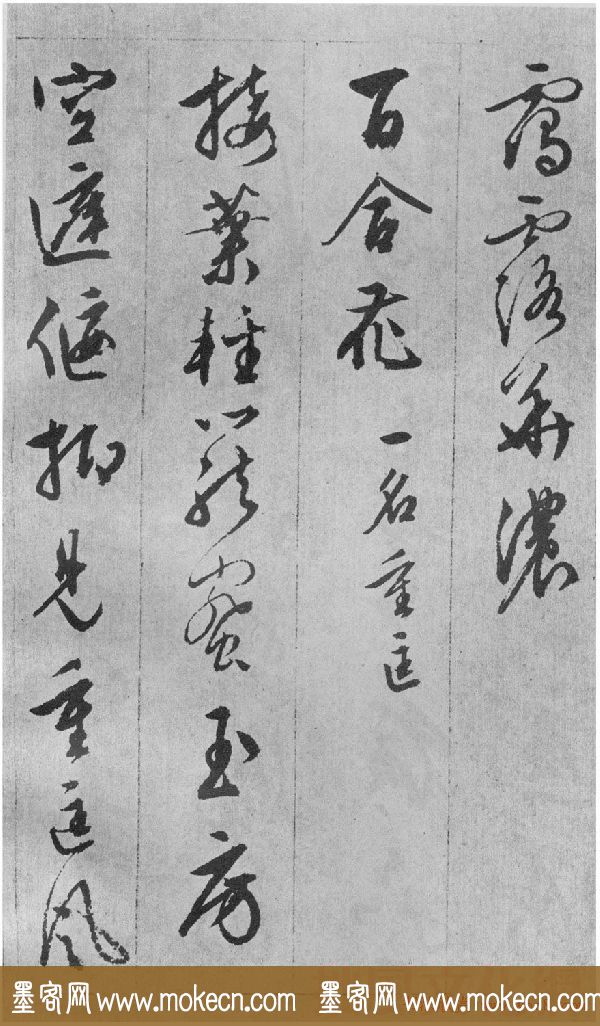 露華濃
百合花 一名重匡
接葉種蜜玉房
空偃抑見重匡風
墨客网 www.mokecn.com 墨客网 www.mokecn.com